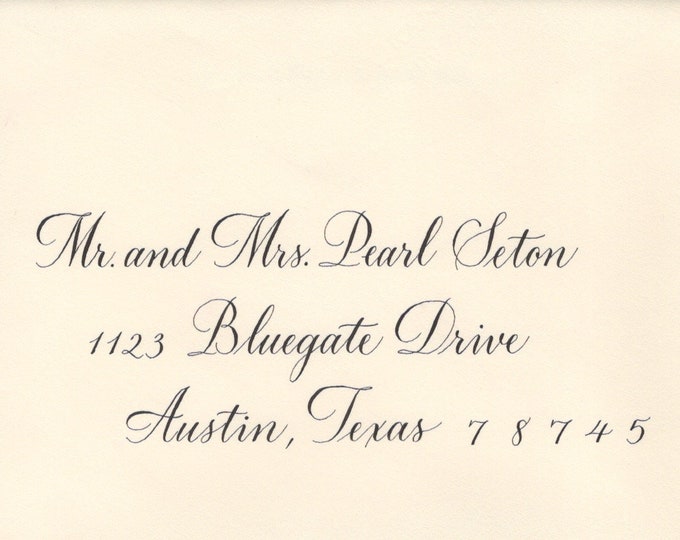 Mr. and Mrs. Pearl Seton
1123 Bluegate Drive
Austin, Texas 78745